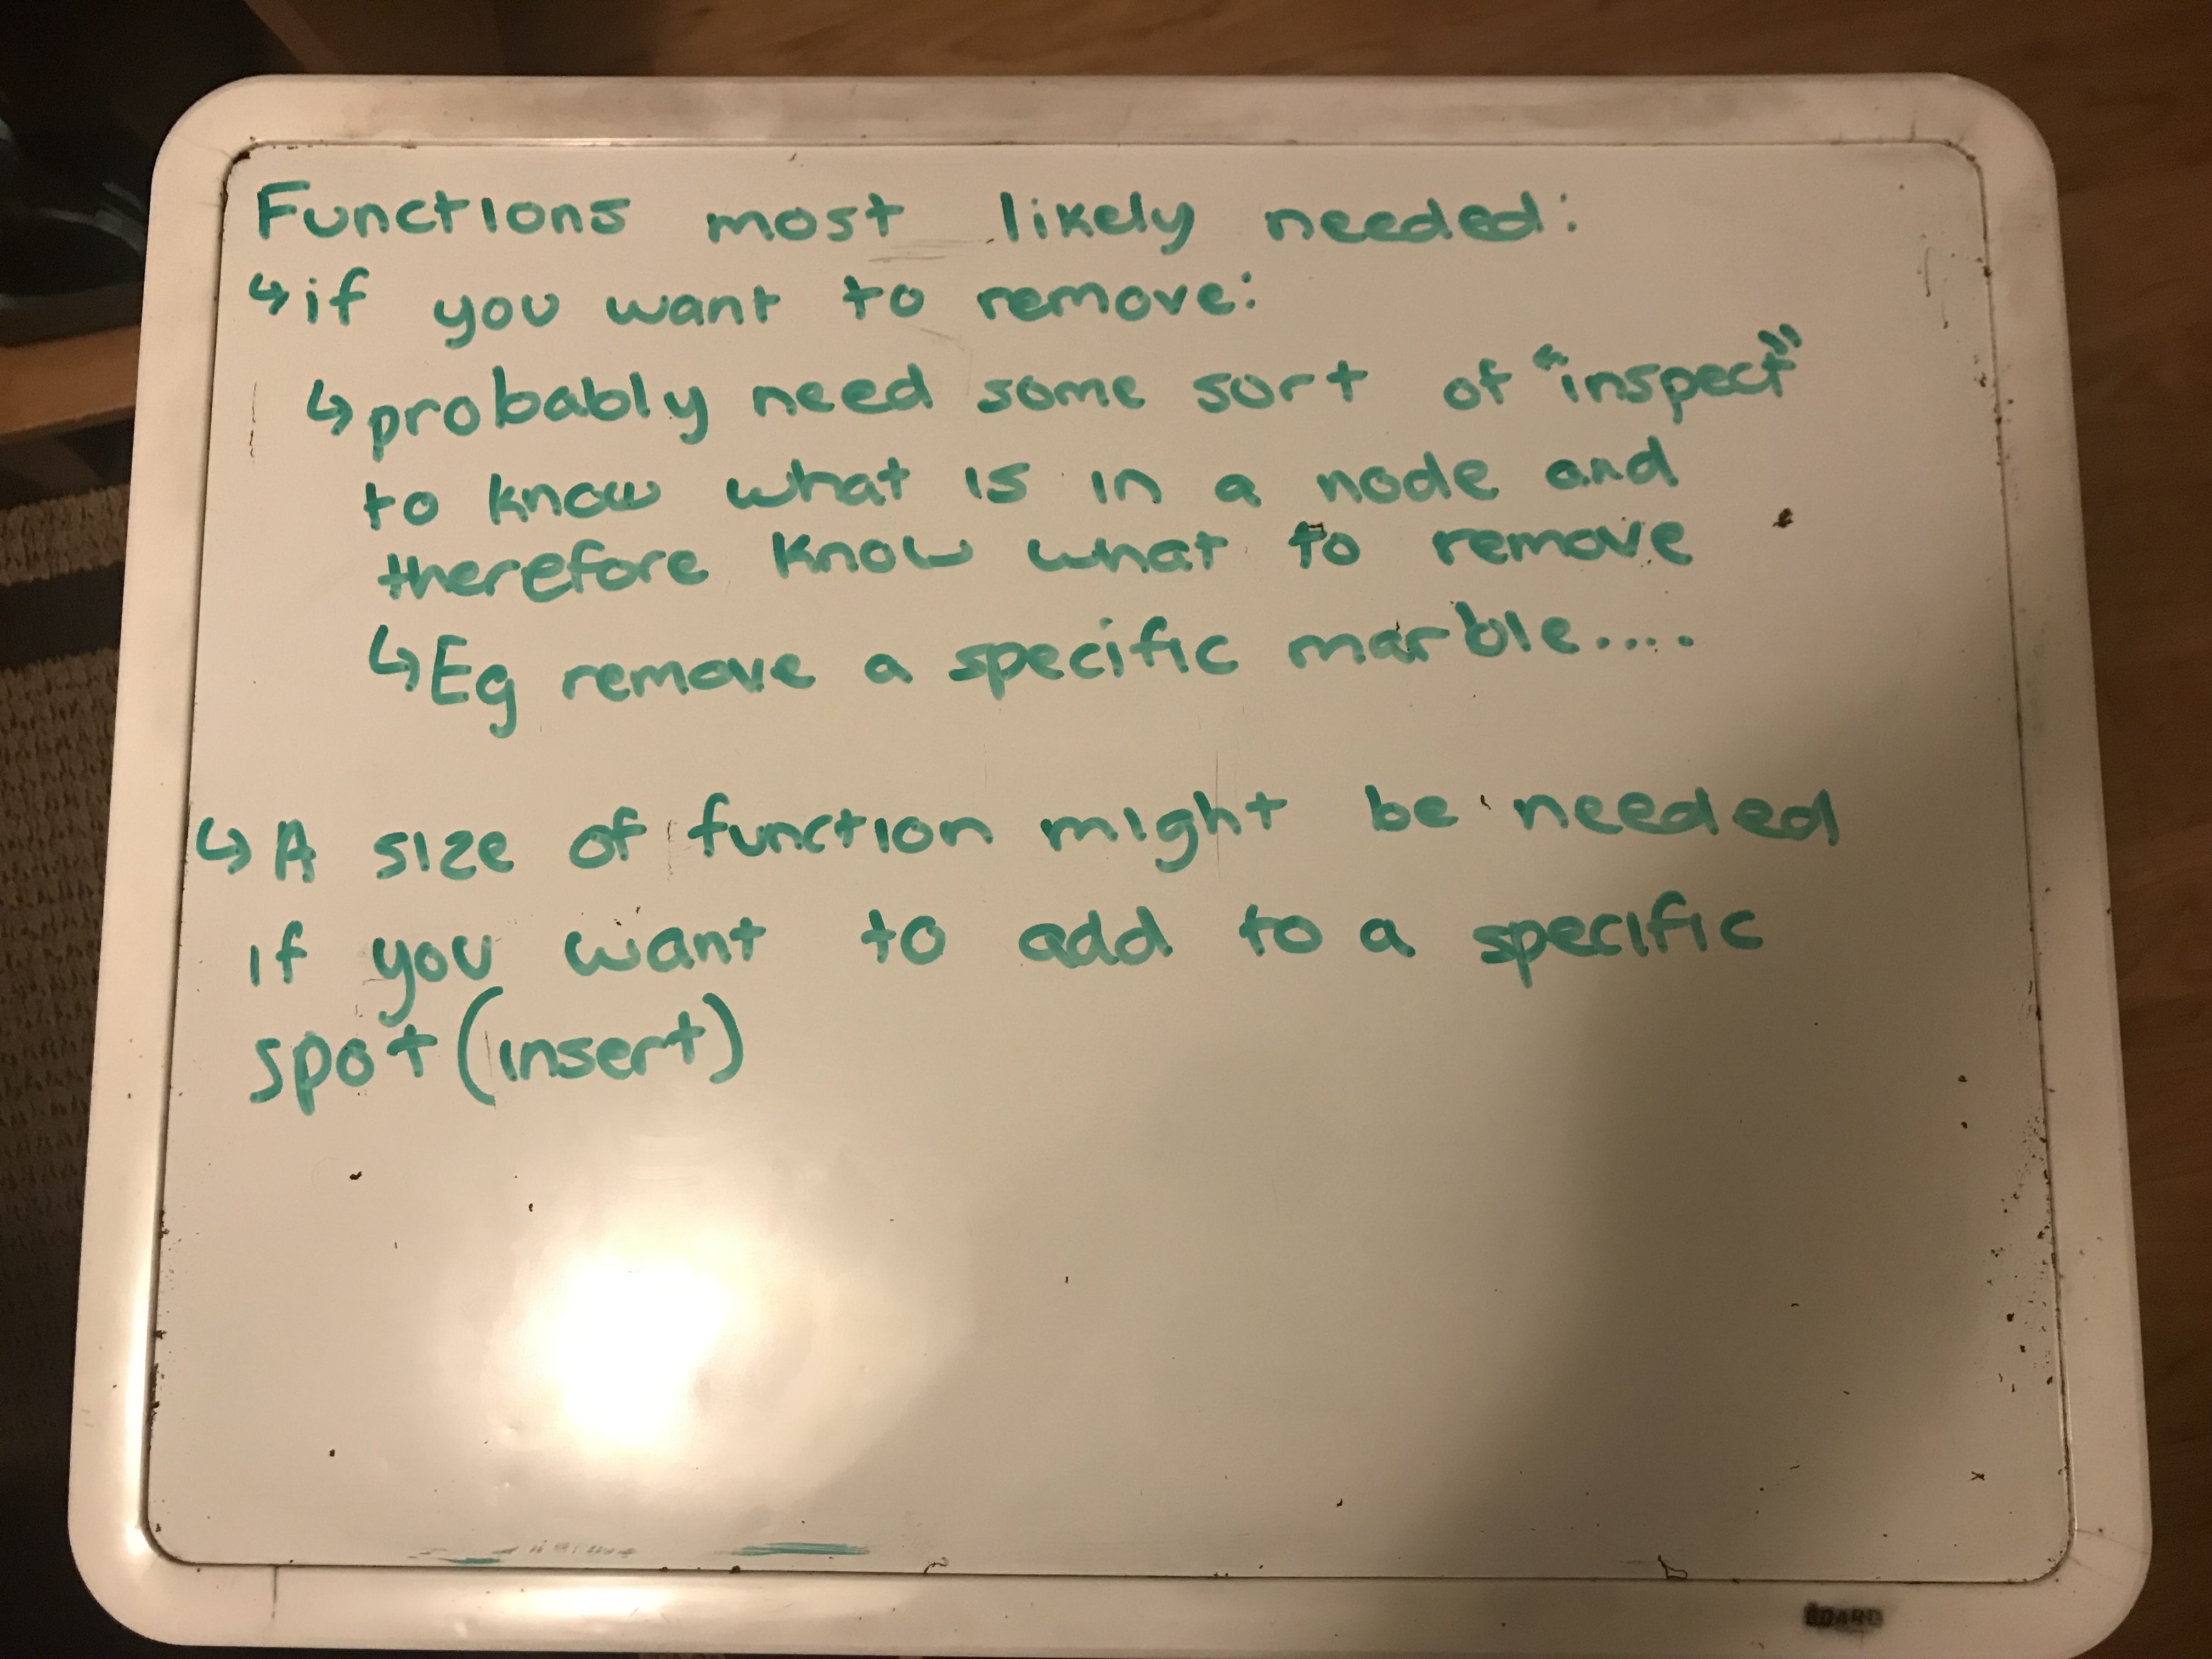 Functions most likely needed:
↳ if you want to remove:
↳ probably need some sort of "inspect"
to know what is in a node and
therefore know what to remove
↳ Eg remove a specific marble....
↳ A size of function might be needed
if you want to add to a specific
spot (insert)